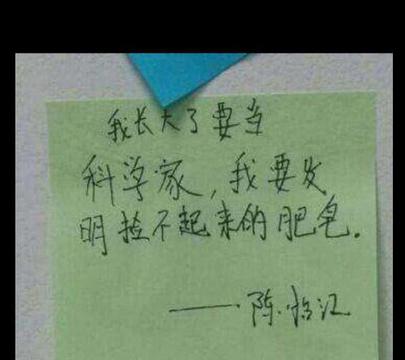 我长大了要当
科学家，我要发
明捡不起来的肥皂.
——陈怡江